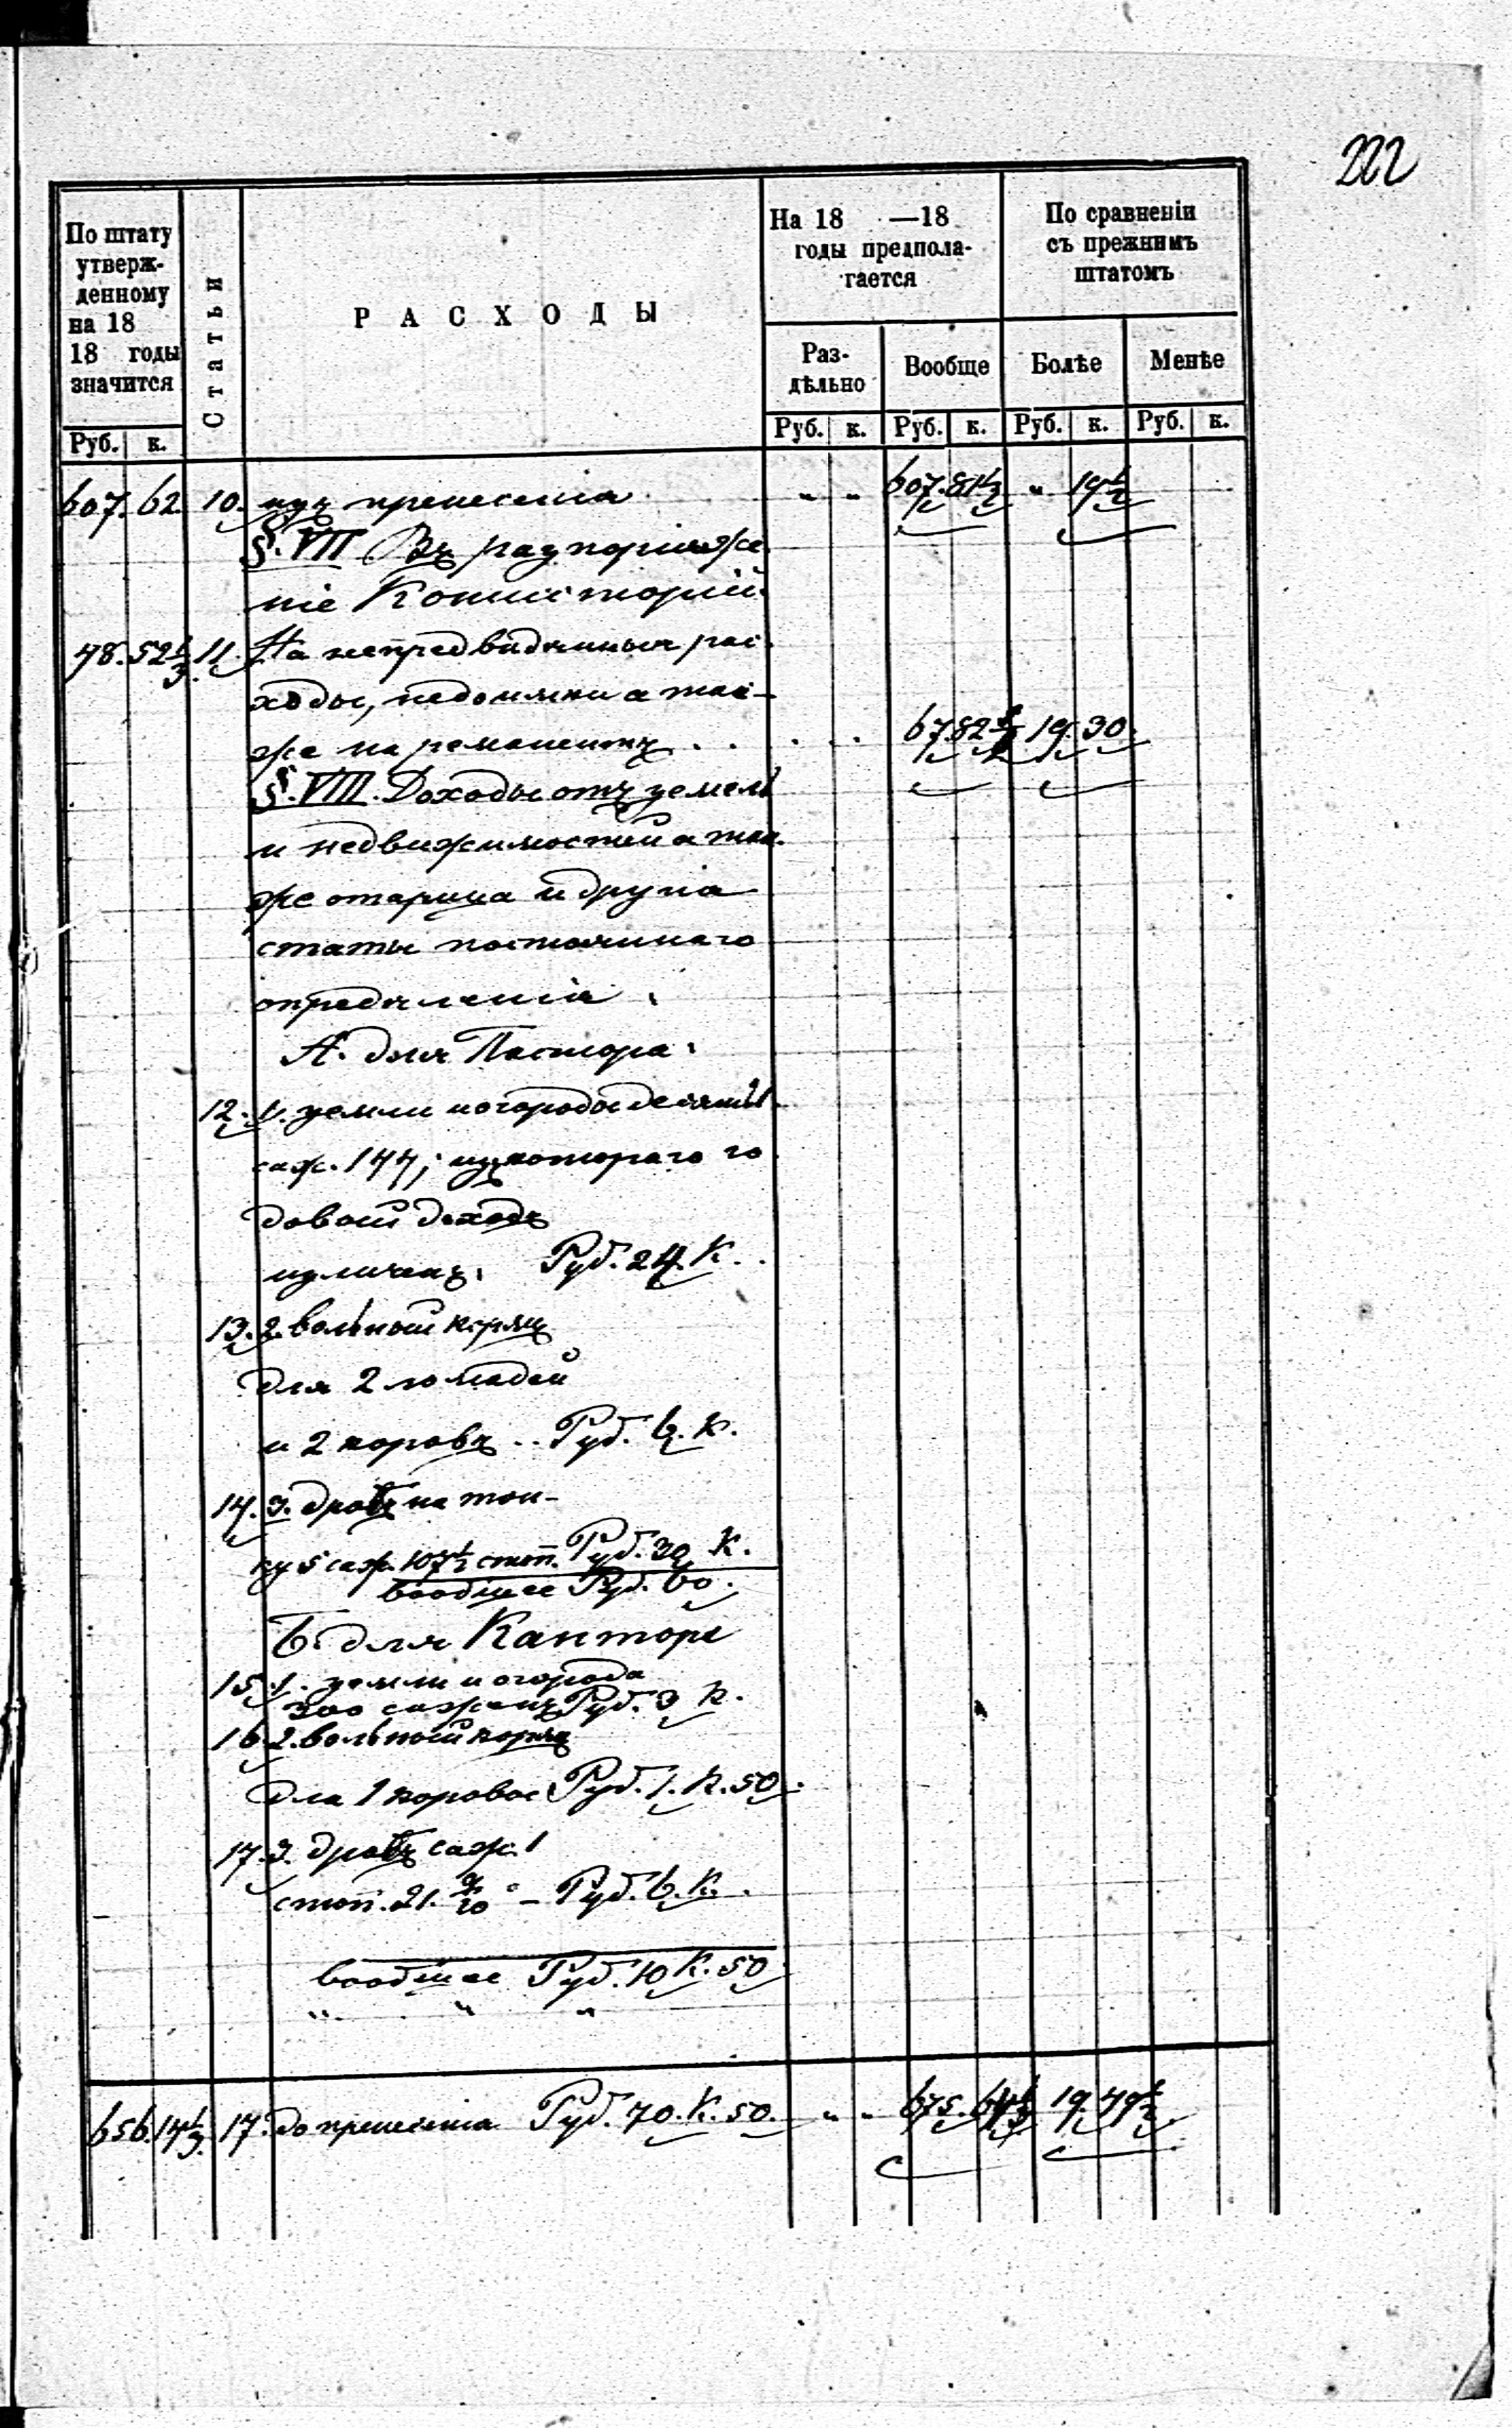 222
По штату
утверж-
денному
на 18
18 годы
значится
Статьи
РАСХОДЫ
На 18 —18
годы предпола-
гается
По сравненіи
съ прежнимъ
штатомъ
Раз-
дѣльно
Вообще
Болѣе
Менѣе
Руб. к. Руб. к. Руб. к. Руб. к. Руб. к.
607. 62. 10. изъ пренесенія " " 607. 81½ " 19½
§. VII Въ разпоряже
ніе Консисторіи.
48. 52⅓. 11. На непредвидѣнныя рас
ходы, недоимки а так-
же на ремонентъ . . . . . 67. 82 19. 30.
§. VIII. Доходы отъ земель
и недвижимостей а так.
же отарица и друга
статьи постояннаго
опредѣленія.
А. для Пастора.
12. 1. земли и огороды десят. 1
саж. 144; изъ котораго го
довой доходъ
изличенъ. Руб. 24. К. .
13. 2. вольный кормъ
для 2 лошадей
и 2 коровъ .. Руб. 6. К.
14. 3. дровъ на топ-
ку 5 саж. 107½ стоп. Руб. 30 К.
вообщее Руб. 60.
Б. для Кантора
15. 1. земли и огорода
300 сажень Руб. 3 К.
16. 2. вольный кормъ
для 1 коровы Руб. 1. К. 50.
17. 3. дровъ саж. 1
стоп. 21. — Руб. 6. К.
вообщее Руб. 10 К. 50
" " "
656. 14⅓. 17. до пренесенія Руб. 70. К. 50. " " 675. 64 19. 49½